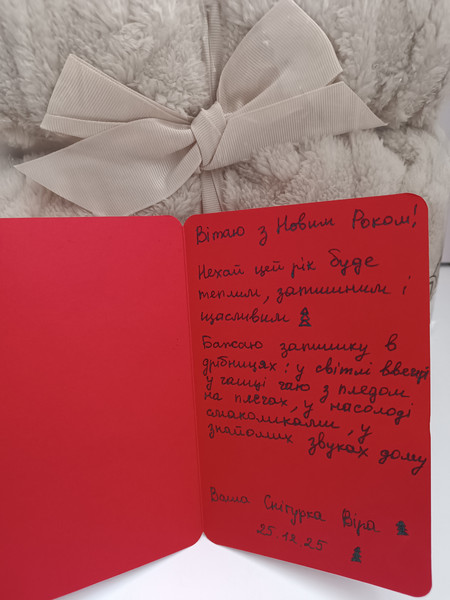 Вітаю з Новим Роком!
Нехай цей рік буде
теплим, затишним і
щасливим
Бажаю затишку в
дрібницях: у світлі ввечері
у чашці чаю з пледом
на плечах, у насолоді
смаколиками, у
знайомих звуках дому
Ваша Снігурка Віра
25.12.25